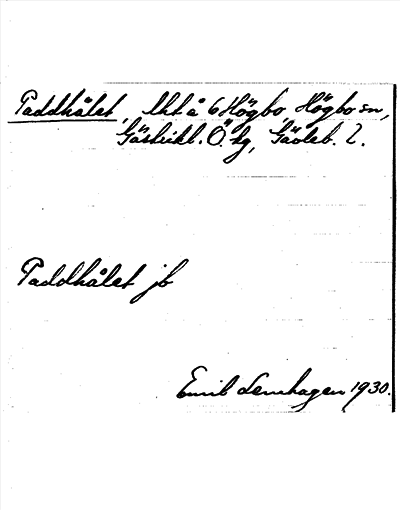 Paddhålet, lht å 6 Högbo, Högbo sn,
Gästrikl. Ö. tg, Gävleb. l.
Paddhålet jb
Emil Lemhagen 1930.